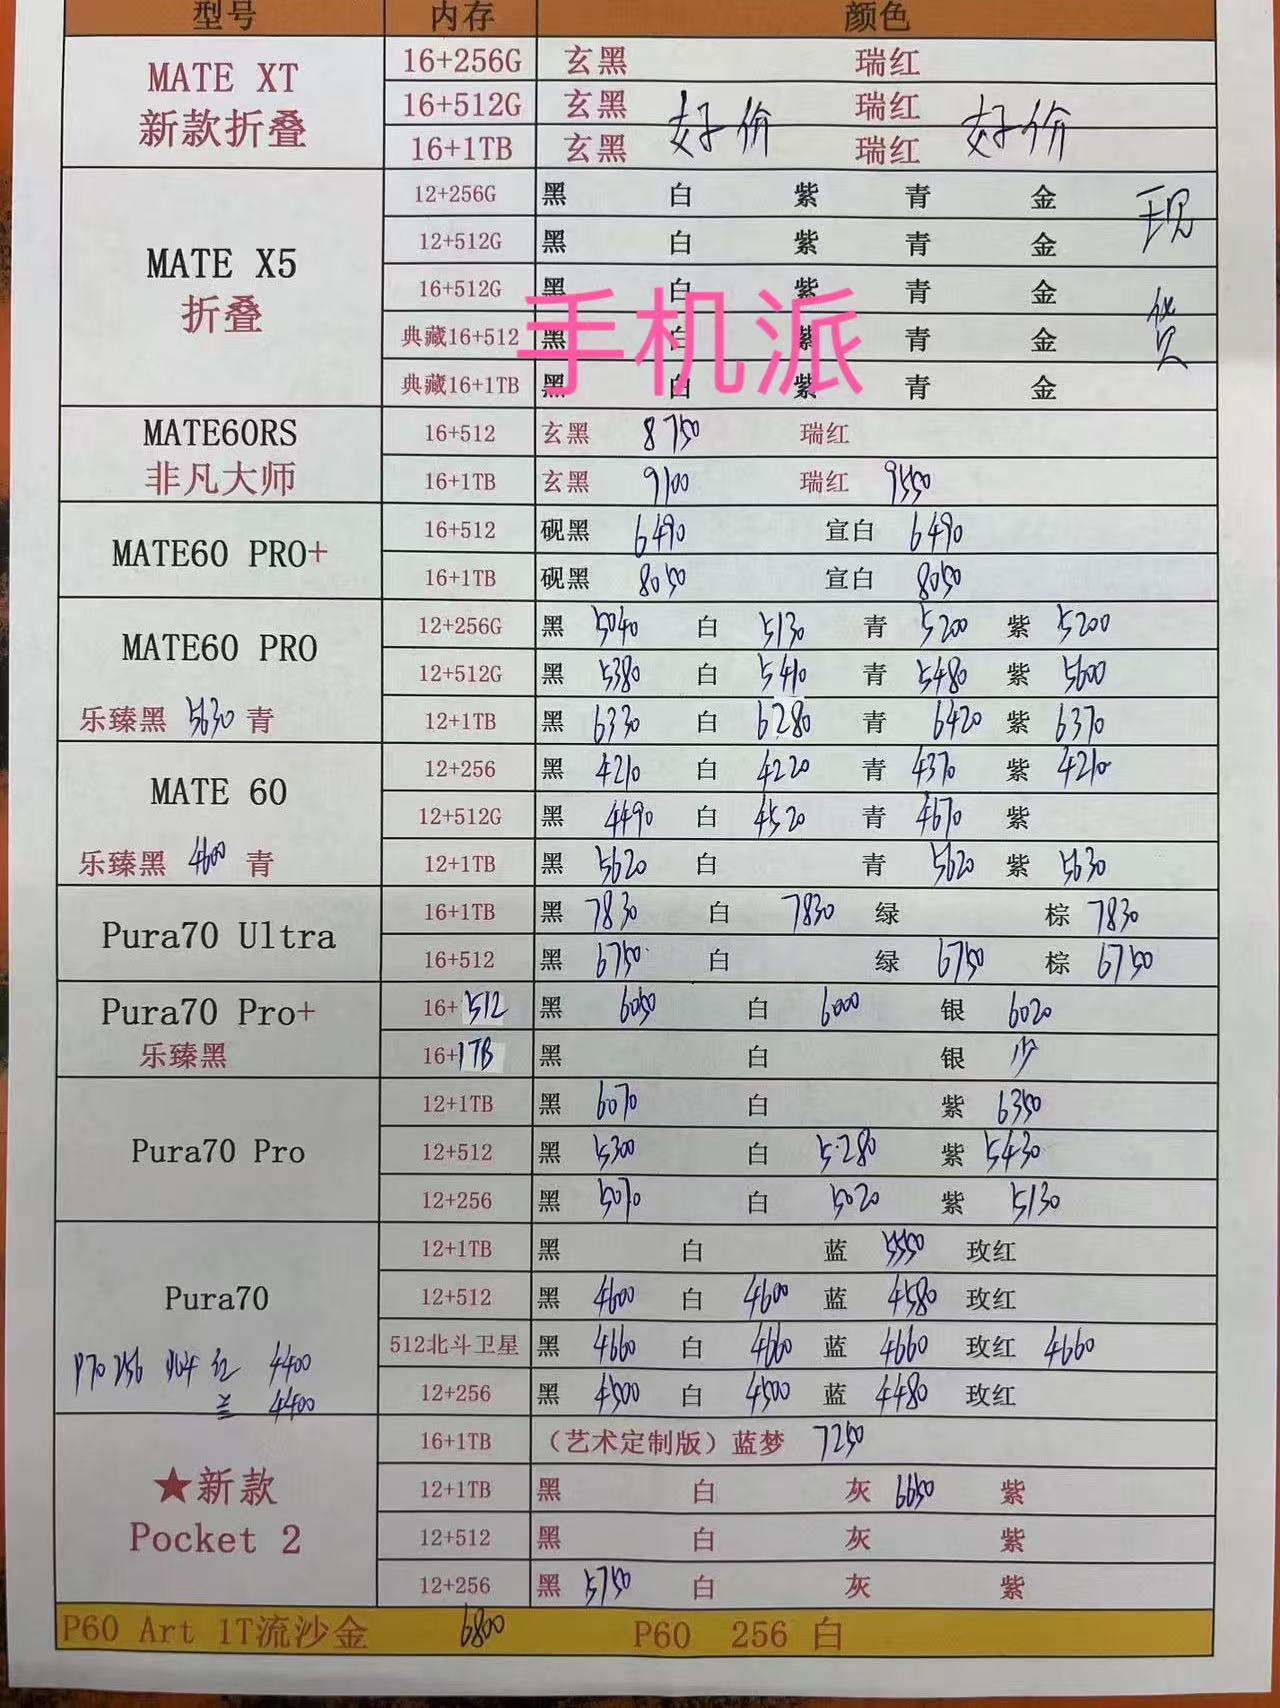 型号 内存 颜色
MATE XT 新款折叠
16+256G 玄黑 瑞红
16+512G 玄黑 好价 瑞红 好价
16+1TB 玄黑 瑞红
MATE X5 折叠
12+256G 黑 白 紫 青 金 现
12+512G 黑 白 紫 青 金
16+512G 黑 白 紫 青 金 货
手机派
典藏16+512 黑 白 紫 青 金
典藏16+1TB 黑 白 紫 青 金
MATE60RS 非凡大师
16+512 玄黑 8750 瑞红
16+1TB 玄黑 9100 瑞红 9550
MATE60 PRO+
16+512 砚黑 6490 宣白 6490
16+1TB 砚黑 8050 宣白 8050
MATE60 PRO
12+256G 黑 5040 白 5130 青 5200 紫 5200
12+512G 黑 5380 白 5410 青 5480 紫 5600
乐臻黑 5630 青
12+1TB 黑 6330 白 6280 青 6420 紫 6370
MATE 60
12+256 黑 4210 白 4220 青 4370 紫 4210
12+512G 黑 4490 白 4520 青 4670 紫
乐臻黑 4600 青
12+1TB 黑 5620 白 青 5620 紫 5630
Pura70 Ultra
16+1TB 黑 7830 白 7830 绿 棕 7830
16+512 黑 6750 白 绿 6750 棕 6750
Pura70 Pro+
16+512 黑 6050 白 6000 银 6020
乐臻黑
16+1TB 黑 白 银 少
Pura70 Pro
12+1TB 黑 6070 白 紫 6350
12+512 黑 5300 白 5280 紫 5430
12+256 黑 5070 白 5020 紫 5130
Pura70
12+1TB 黑 白 蓝 5550 玫红
12+512 黑 4600 白 4600 蓝 4580 玫红
512北斗卫星 黑 4660 白 4660 蓝 4660 玫红 4660
P70 256 红 4400
12+256 黑 4500 白 4500 蓝 4480 玫红
4400
★新款 Pocket 2
16+1TB (艺术定制版)蓝梦 7250
12+1TB 黑 白 灰 6650 紫
12+512 黑 白 灰 紫
12+256 黑 5750 白 灰 紫
P60 Art 1T流沙金 6800 P60 256 白